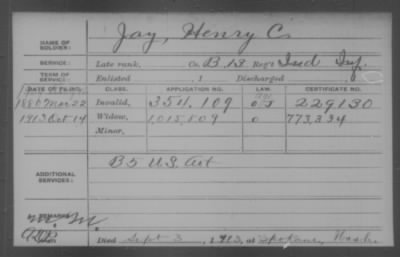 NAME OF SOLDIER: Jay, Henry C.
SERVICE: Late rank, Co. B, 13 Reg't Ind Inf.
TERM OF SERVICE: Enlisted , 1 Discharged
DATE OF FILING. CLASS. APPLICATION NO. LAW. CERTIFICATE NO.
1880 Mar 22 Invalid, 351,109 229130
1913 Oct 14 Widow, 1,015,809 0 773,334
Minor,
ADDITIONAL SERVICES: B 5 U.S. Art
REMARKS:
Died Sept 3, 1913, at Spokane, Wash.